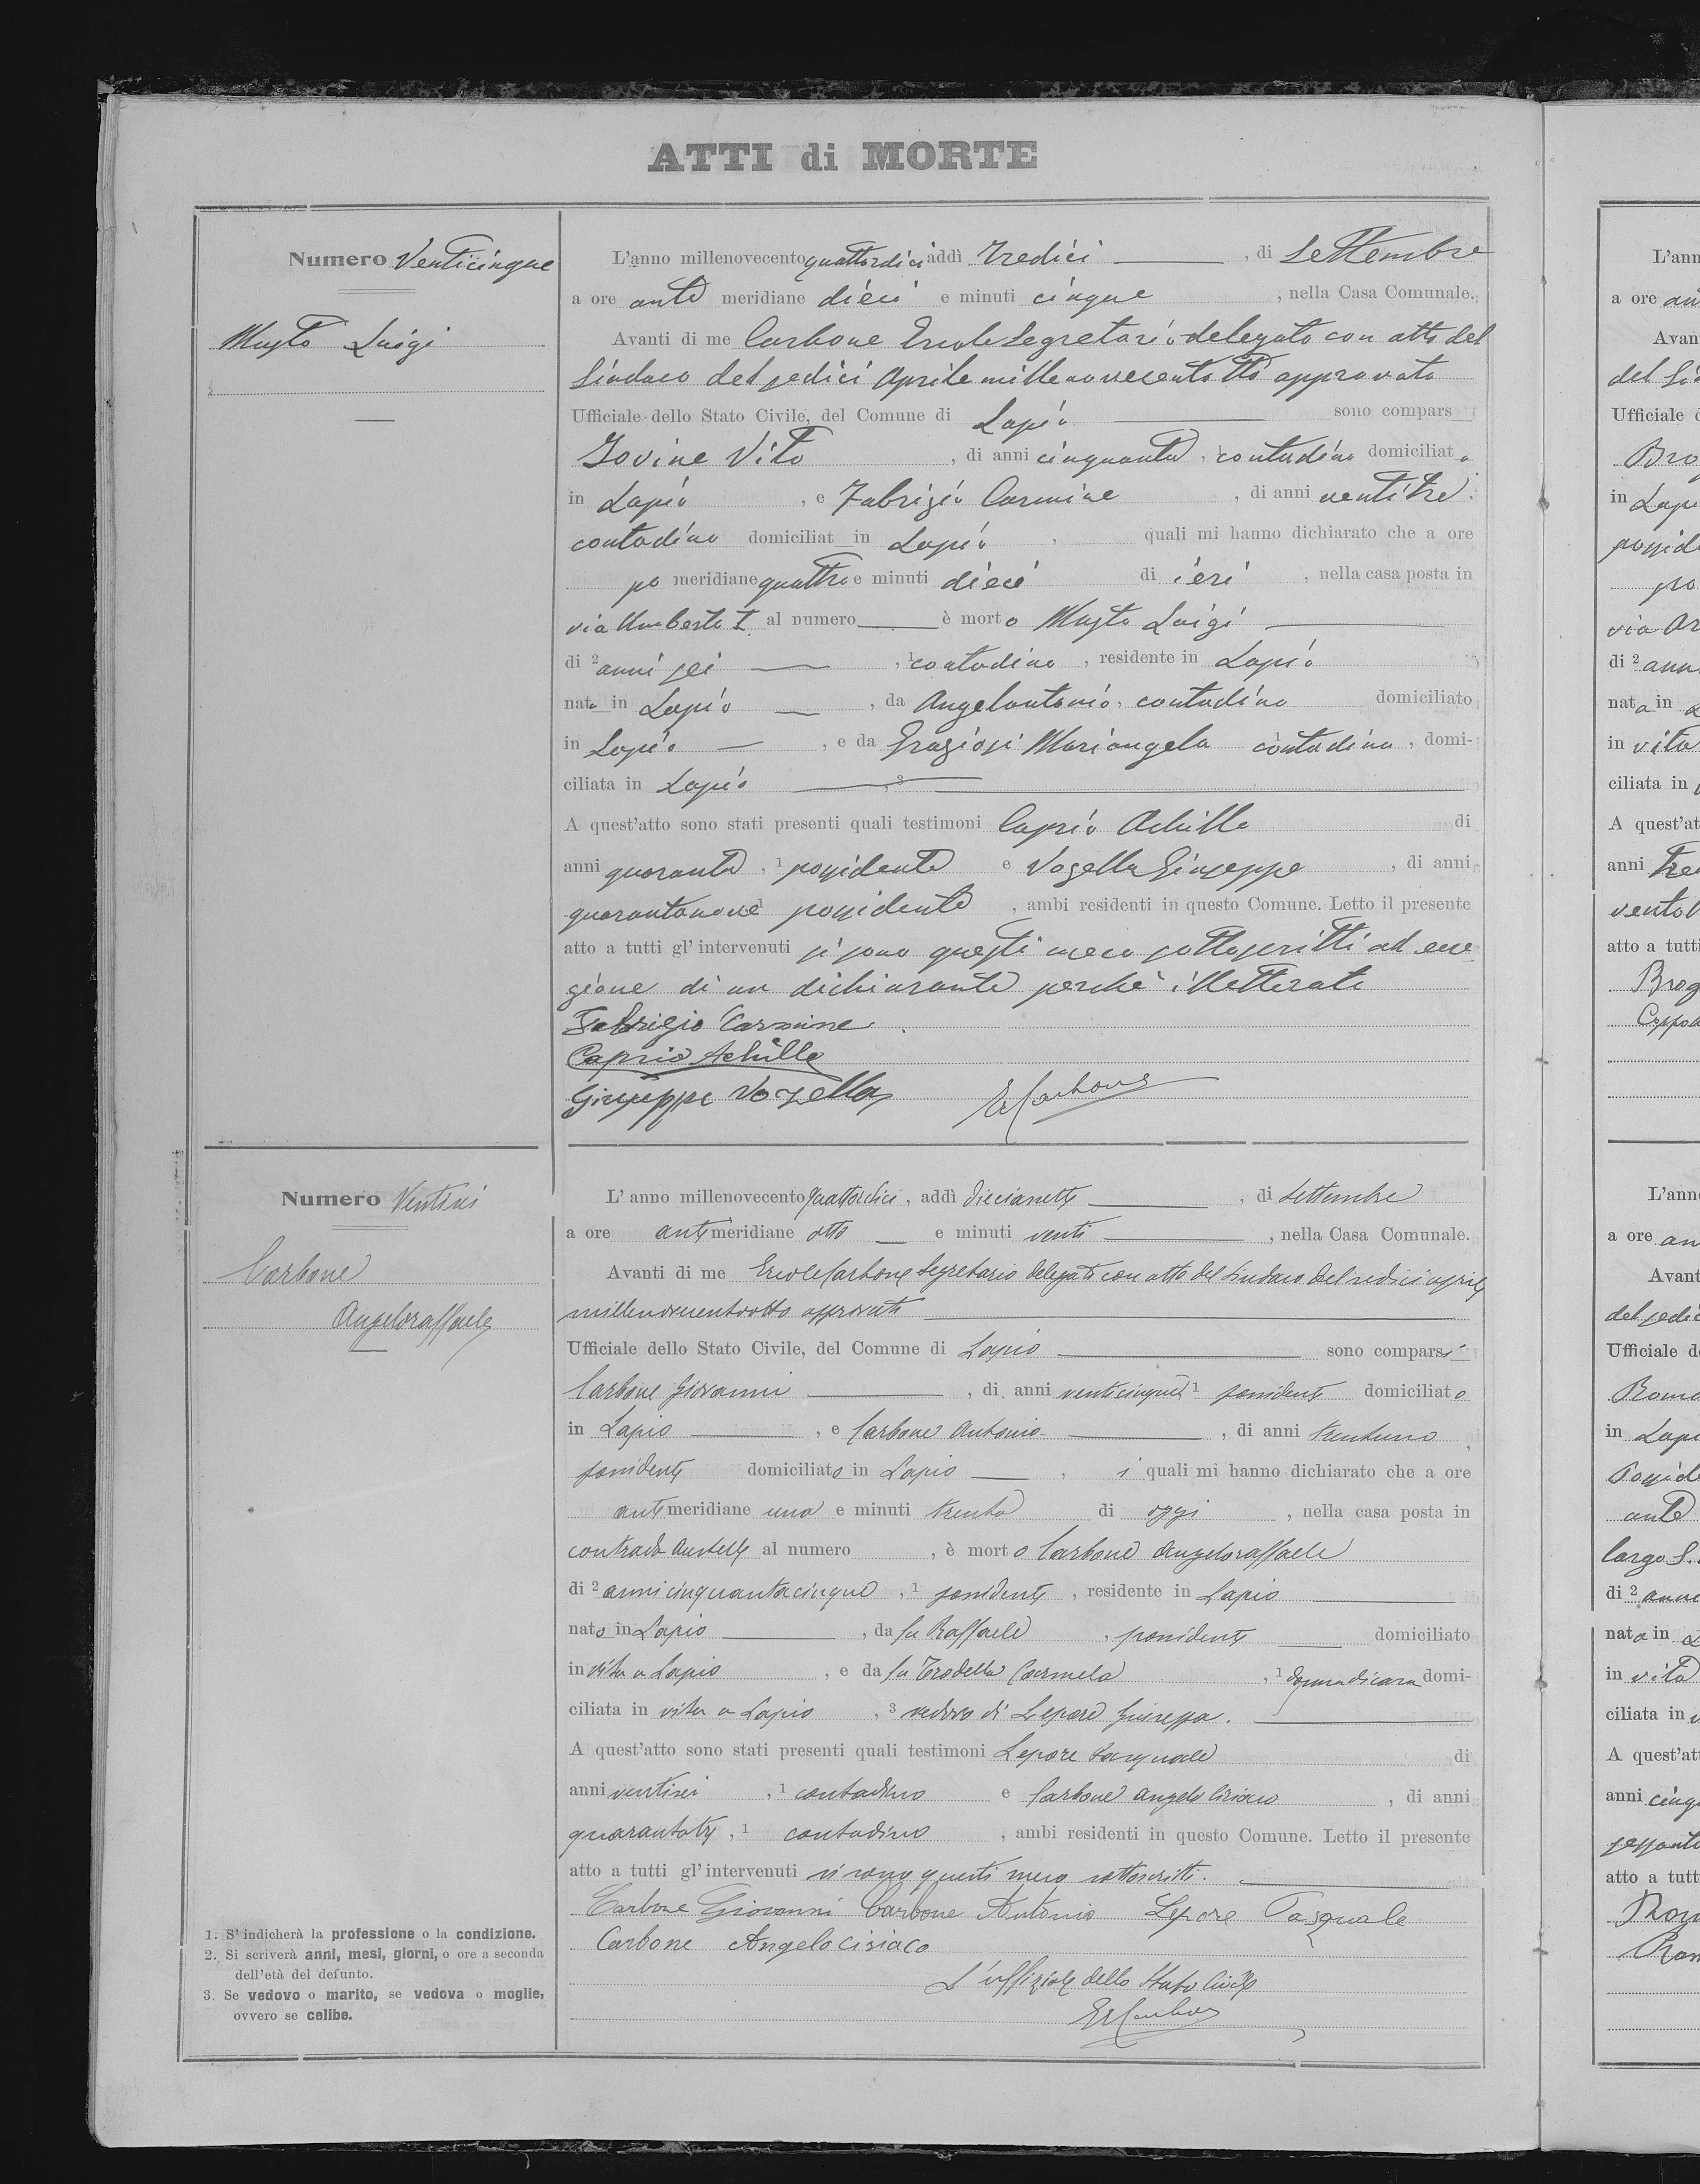 ATTI di MORTE
Numero Venticinque
Musto Luigi
L'anno millenovecento quattordici addì tredici, di Settembre
a ore ante meridiane dieci e minuti cinque, nella Casa Comunale.
Avanti di me Carbone Ercole Segretario delegato con atto del
Sindaco del sedici Aprile millenovecentotto approvato
Ufficiale dello Stato Civile, del Comune di Lapio sono compars
Iovine Vito, di anni cinquanta, contadino domiciliato
in Lapio, e Fabrizio Carmine, di anni ventitre
contadino domiciliat in Lapio, quali mi hanno dichiarato che a ore
po meridiane quattro e minuti dieci di ieri, nella casa posta in
via Umberto I al numero è morto Musto Luigi
di 2 anni sei, 1 contadino, residente in Lapio
nato in Lapio, da Angelantonio, contadino domiciliato
in Lapio, e da Graziosi Mariangela contadina, domi-
ciliata in Lapio 3
A quest'atto sono stati presenti quali testimoni Caprio Achille di
anni quaranta, 1 possidente e Vozella Giuseppe, di anni
quarantanove 1 possidente, ambi residenti in questo Comune. Letto il presente
atto a tutti gl'intervenuti si sono questi meco sottoscritti ad ecce
zione di un dichiarante perchè illetterato
Fabrizio Carmine.
Caprio Achille
Giuseppe Vozella ECarbone
Numero Ventisei
Carbone
Angeloraffaele
L'anno millenovecento quattordici, addì diecianette, di Settembre
a ore antimeridiane otto e minuti venti, nella Casa Comunale.
Avanti di me Ercole Carbone Segretario delegato con atto del Sindaco del sedici aprile
millenovecentootto approvato
Ufficiale dello Stato Civile, del Comune di Lapio sono comparsi
Carbone Giovanni, di anni venticinque 1 possidente domiciliato
in Lapio, e Carbone Antonio, di anni trentuno,
possidente domiciliato in Lapio, i quali mi hanno dichiarato che a ore
antimeridiane una e minuti trenta di oggi, nella casa posta in
contrada al numero, è morto Carbone Angeloraffaele
di 2 anni cinquantacinque, 1 possidente, residente in Lapio
nato in Lapio, da fu Raffaele, possidente domiciliato
in vita a Lapio, e da fu Carmela, 1 donna di casa domi-
ciliata in vita a Lapio, 3 vedovo di Lepore Giuseppa.
A quest'atto sono stati presenti quali testimoni Lepore Pasquale di
anni ventisei, 1 contadino e Carbone Angelo Ciriaco, di anni
quarantatre, 1 contadino, ambi residenti in questo Comune. Letto il presente
atto a tutti gl'intervenuti si sono questi meco sottoscritti.
Carbone Giovanni Carbone Antonio Lepore Pasquale
Carbone Angelociriaco
L'uffiziale dello Stato Civile
ECarbone
1. S'indicherà la professione o la condizione.
2. Si scriverà anni, mesi, giorni, o ore a seconda
dell'età del defunto.
3. Se vedovo o marito, se vedova o moglie,
ovvero se celibe.
L'ann
a ore an
Avan
del Si
Ufficiale d
Bro
in Lapi
possid
po
via Ar
di 2 ann
nata in
in vita
ciliata in
A quest'at
anni tre
vento
atto a tutti
Brog
Coppo
L'ann
a ore an
Avant
del sedic
Ufficiale d
Roma
in Lapi
Possid
ante
largo S.
di 2 ann
nata in
in vita
ciliata in
A quest'at
anni cinq
sessant
atto a tutt
Rom
Rom